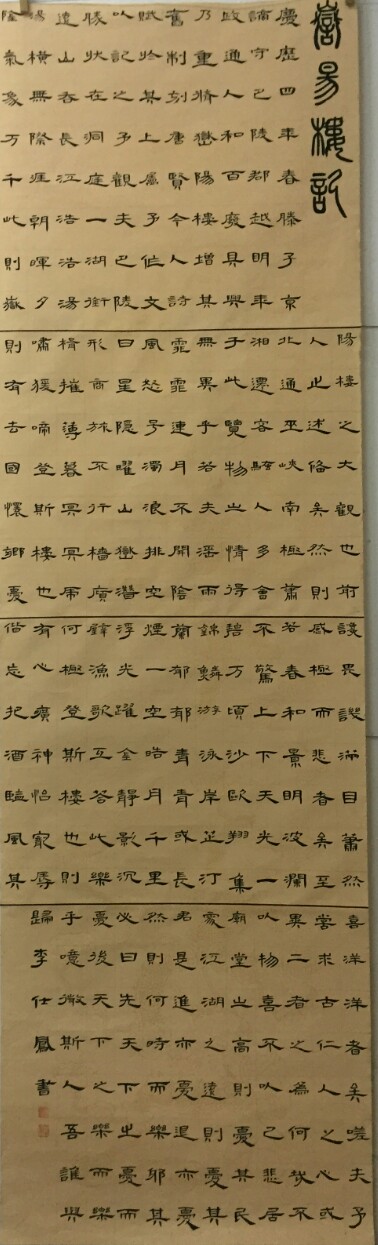 嶽昜樓記
慶歷四年春滕子京
謫守巴陵郡越明年
政通人和百廢具興
乃重脩嶽陽樓增其
舊制刻唐賢今人詩
賦於其上屬予作文
以記之予觀夫巴陵
勝狀在洞庭一湖銜
遠山吞長江浩浩湯
湯橫無際涯朝暉夕
陰氣象万千此則嶽
陽樓之大觀也前
人之述備矣然則
北通巫峽南極瀟
湘遷客騷人多會
于此覽物之情得
無異乎若夫淫雨
霏霏連月不開陰
風怒号濁浪排空
日星隱曜山嶽潛
形商旅不行檣傾
楫摧薄暮冥冥虎
嘯猨啼登斯樓也
則有去國懷鄉憂
讒畏譏滿目蕭然
感極而悲者矣至
若春和景明波瀾
不驚上下天光一
碧万頃沙鷗翔集
錦鱗游泳岸芷汀
蘭郁郁青青或長
煙一空皓月千里
浮光躍金靜影沉
璧漁歌互答此樂
何極登斯樓也則
有心曠神怡寵辱
偕忘把酒臨風其
喜洋洋者矣嗟夫予
嘗求古仁人之心或
異二者之為何哉不
以物喜不以己悲居
廟堂之高則憂其民
處江湖之遠則憂其
君是進亦憂退亦憂
然則何時而樂耶其
必曰先天下之憂而
憂後天下之樂而樂
乎噫微斯人吾誰與
歸李仕鳳書